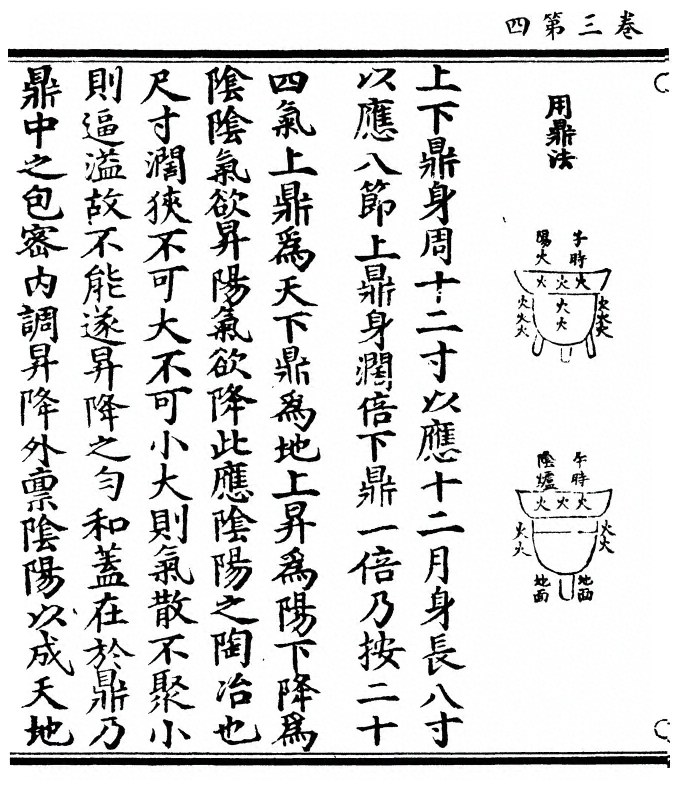 卷三第四
用鼎法
子時
陽火
火火火
火火
火火火
火火火
午時
陰爐
火火火
火火
火火
地面
地面
上下鼎身周十二寸以應十二月身長八寸
以應八節上鼎身濶倍下鼎一倍乃按二十
四氣上鼎為天下鼎為地上昇為陽下降為
陰陰氣欲昇陽氣欲降此應陰陽之陶冶也
尺寸濶狹不可大不可小大則氣散不聚小
則逼溢故不能遂昇降之勻和蓋在於鼎乃
鼎中之包密内調昇降外禀陰陽以成天地